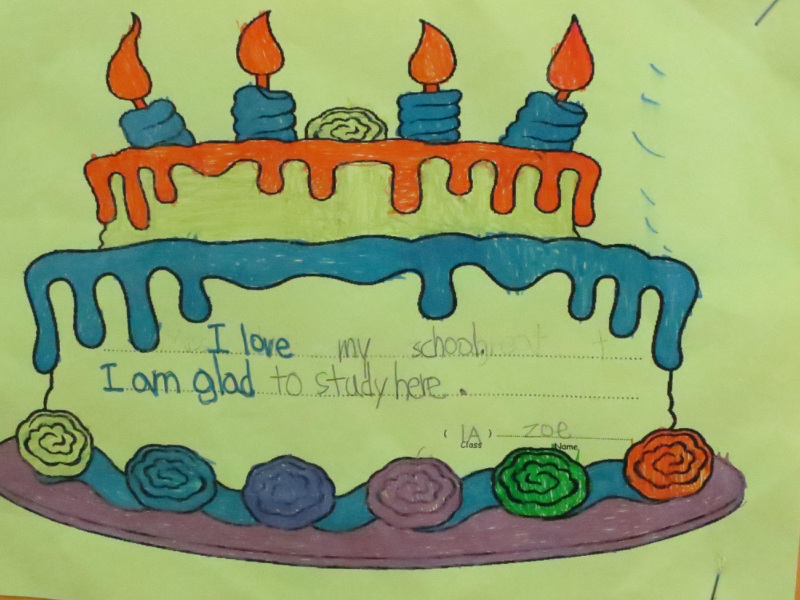 I love my school.
I am glad to study here.
( 1A ) zoe
Class Name